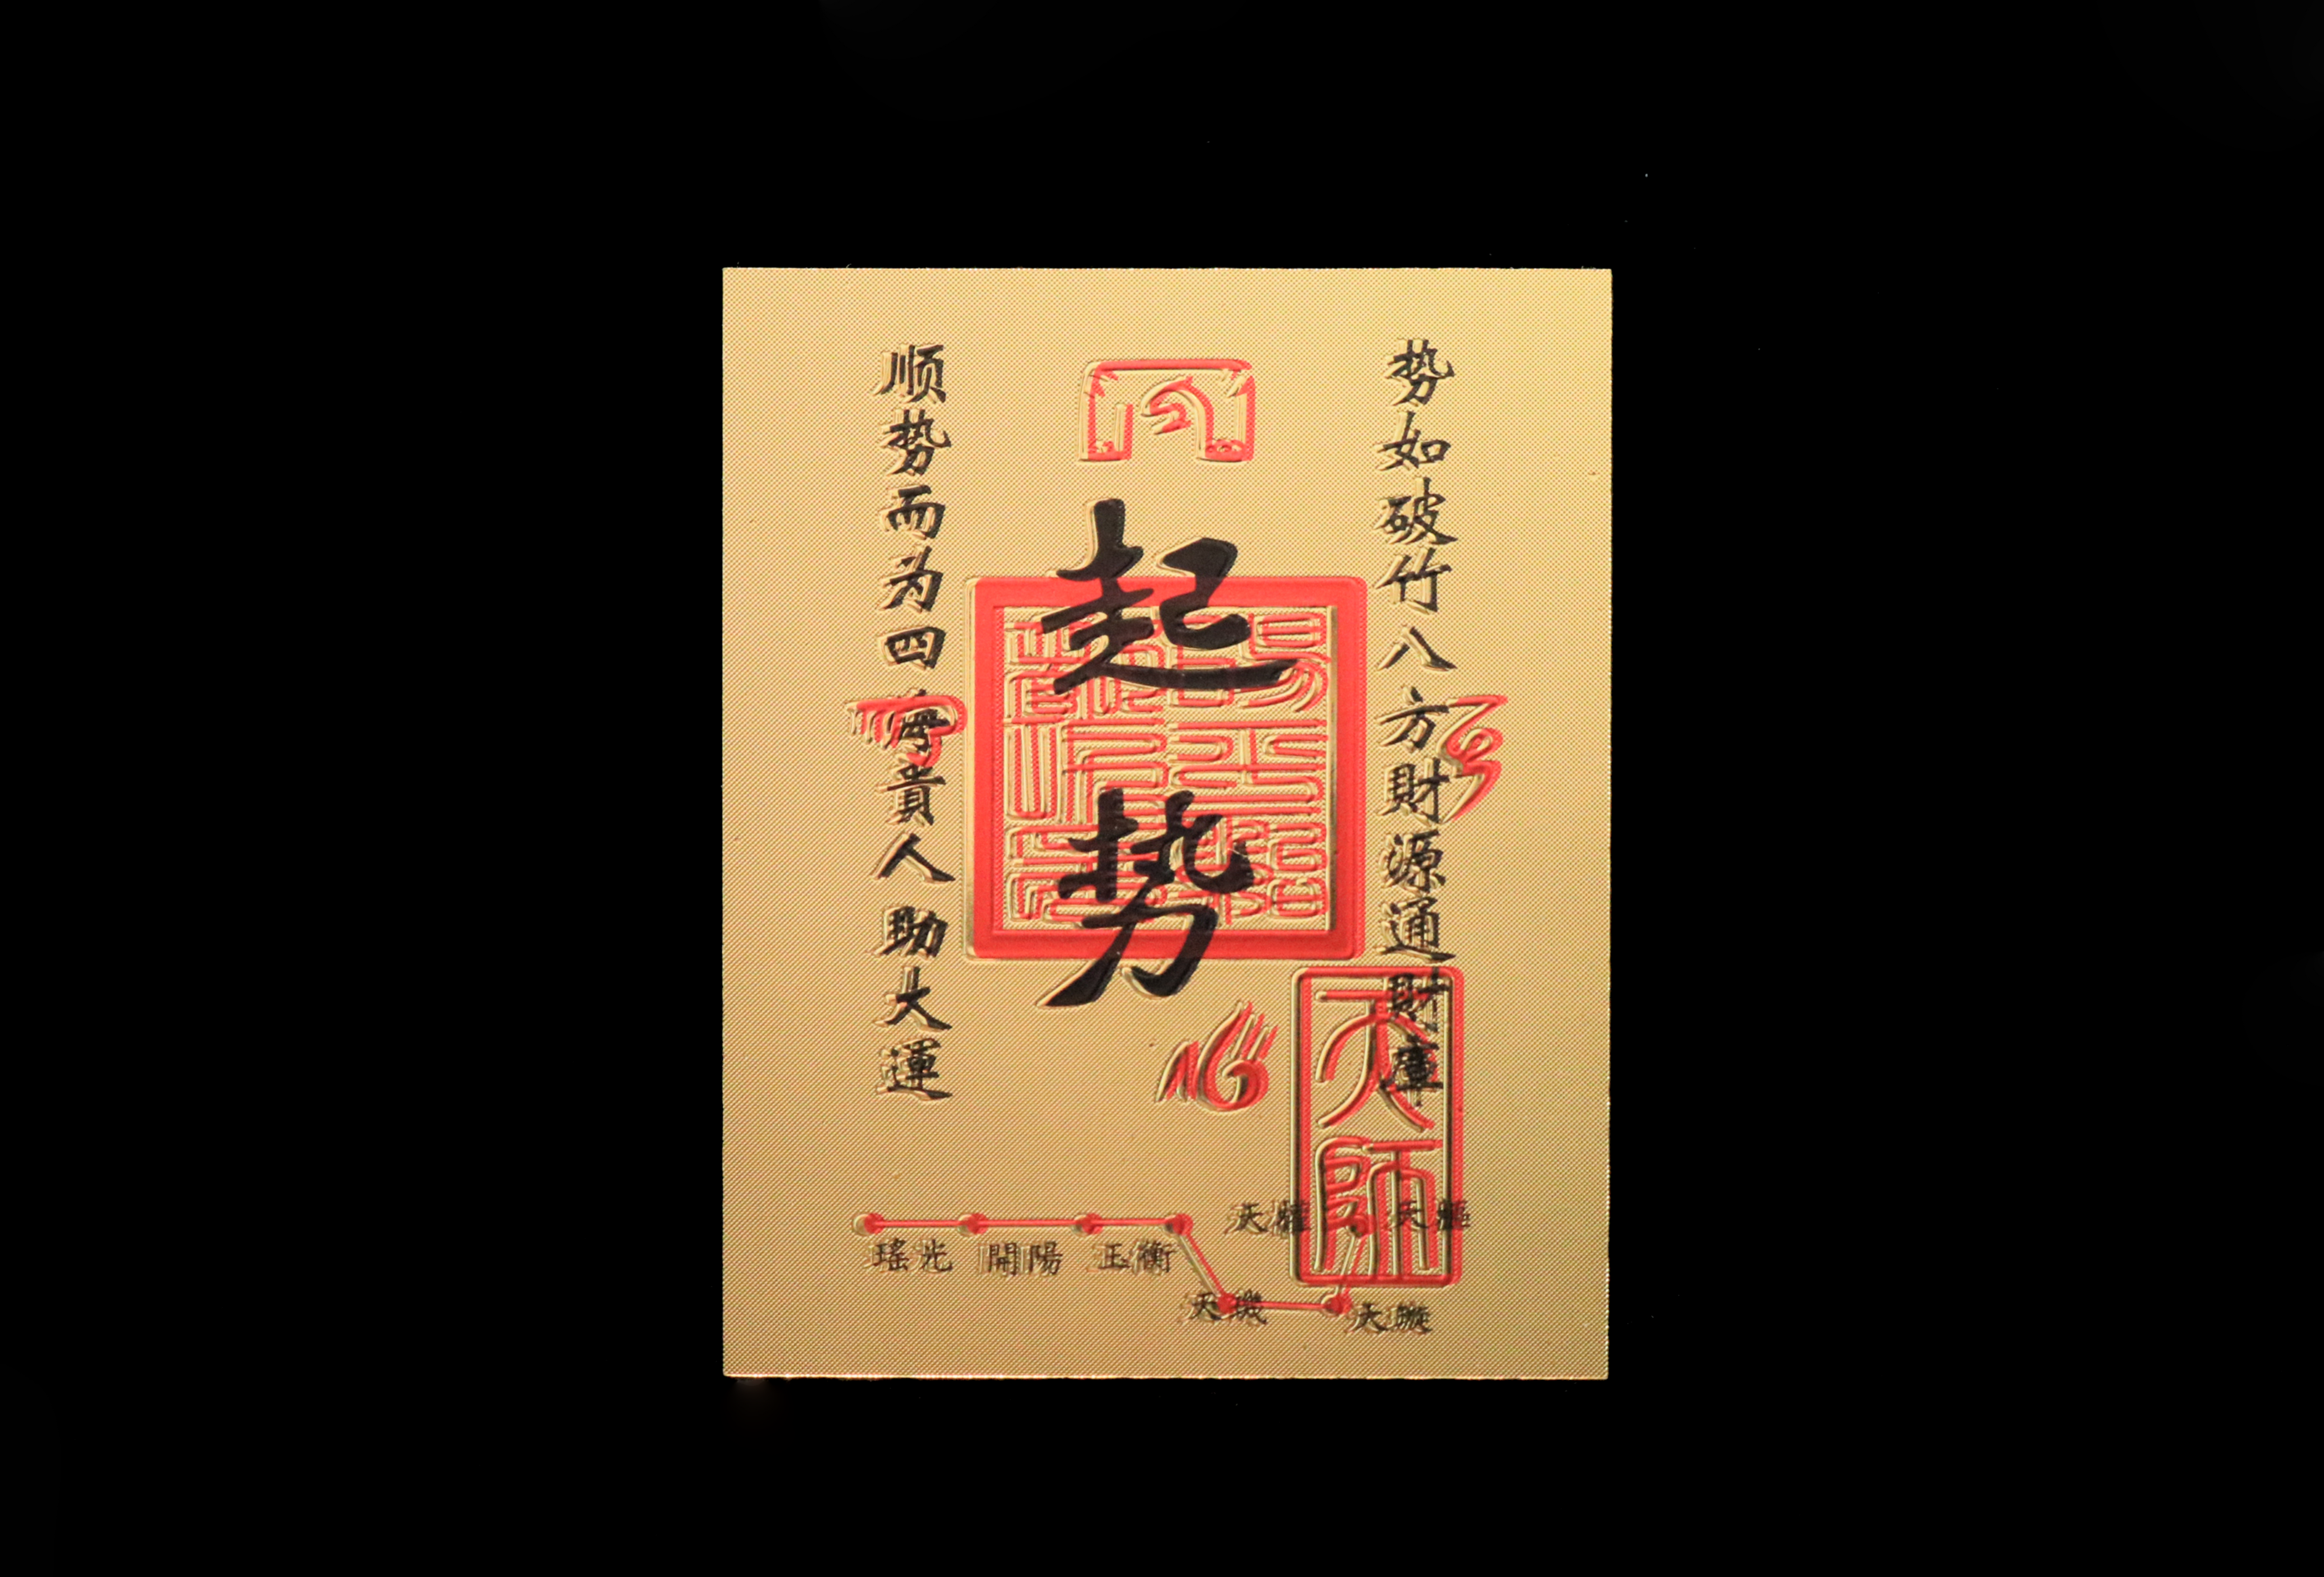 势如破竹八方財源通財庫
起势
顺势而为四海貴人助大運
天師
天權
天樞
瑤光
開陽
玉衡
天璣
天璇